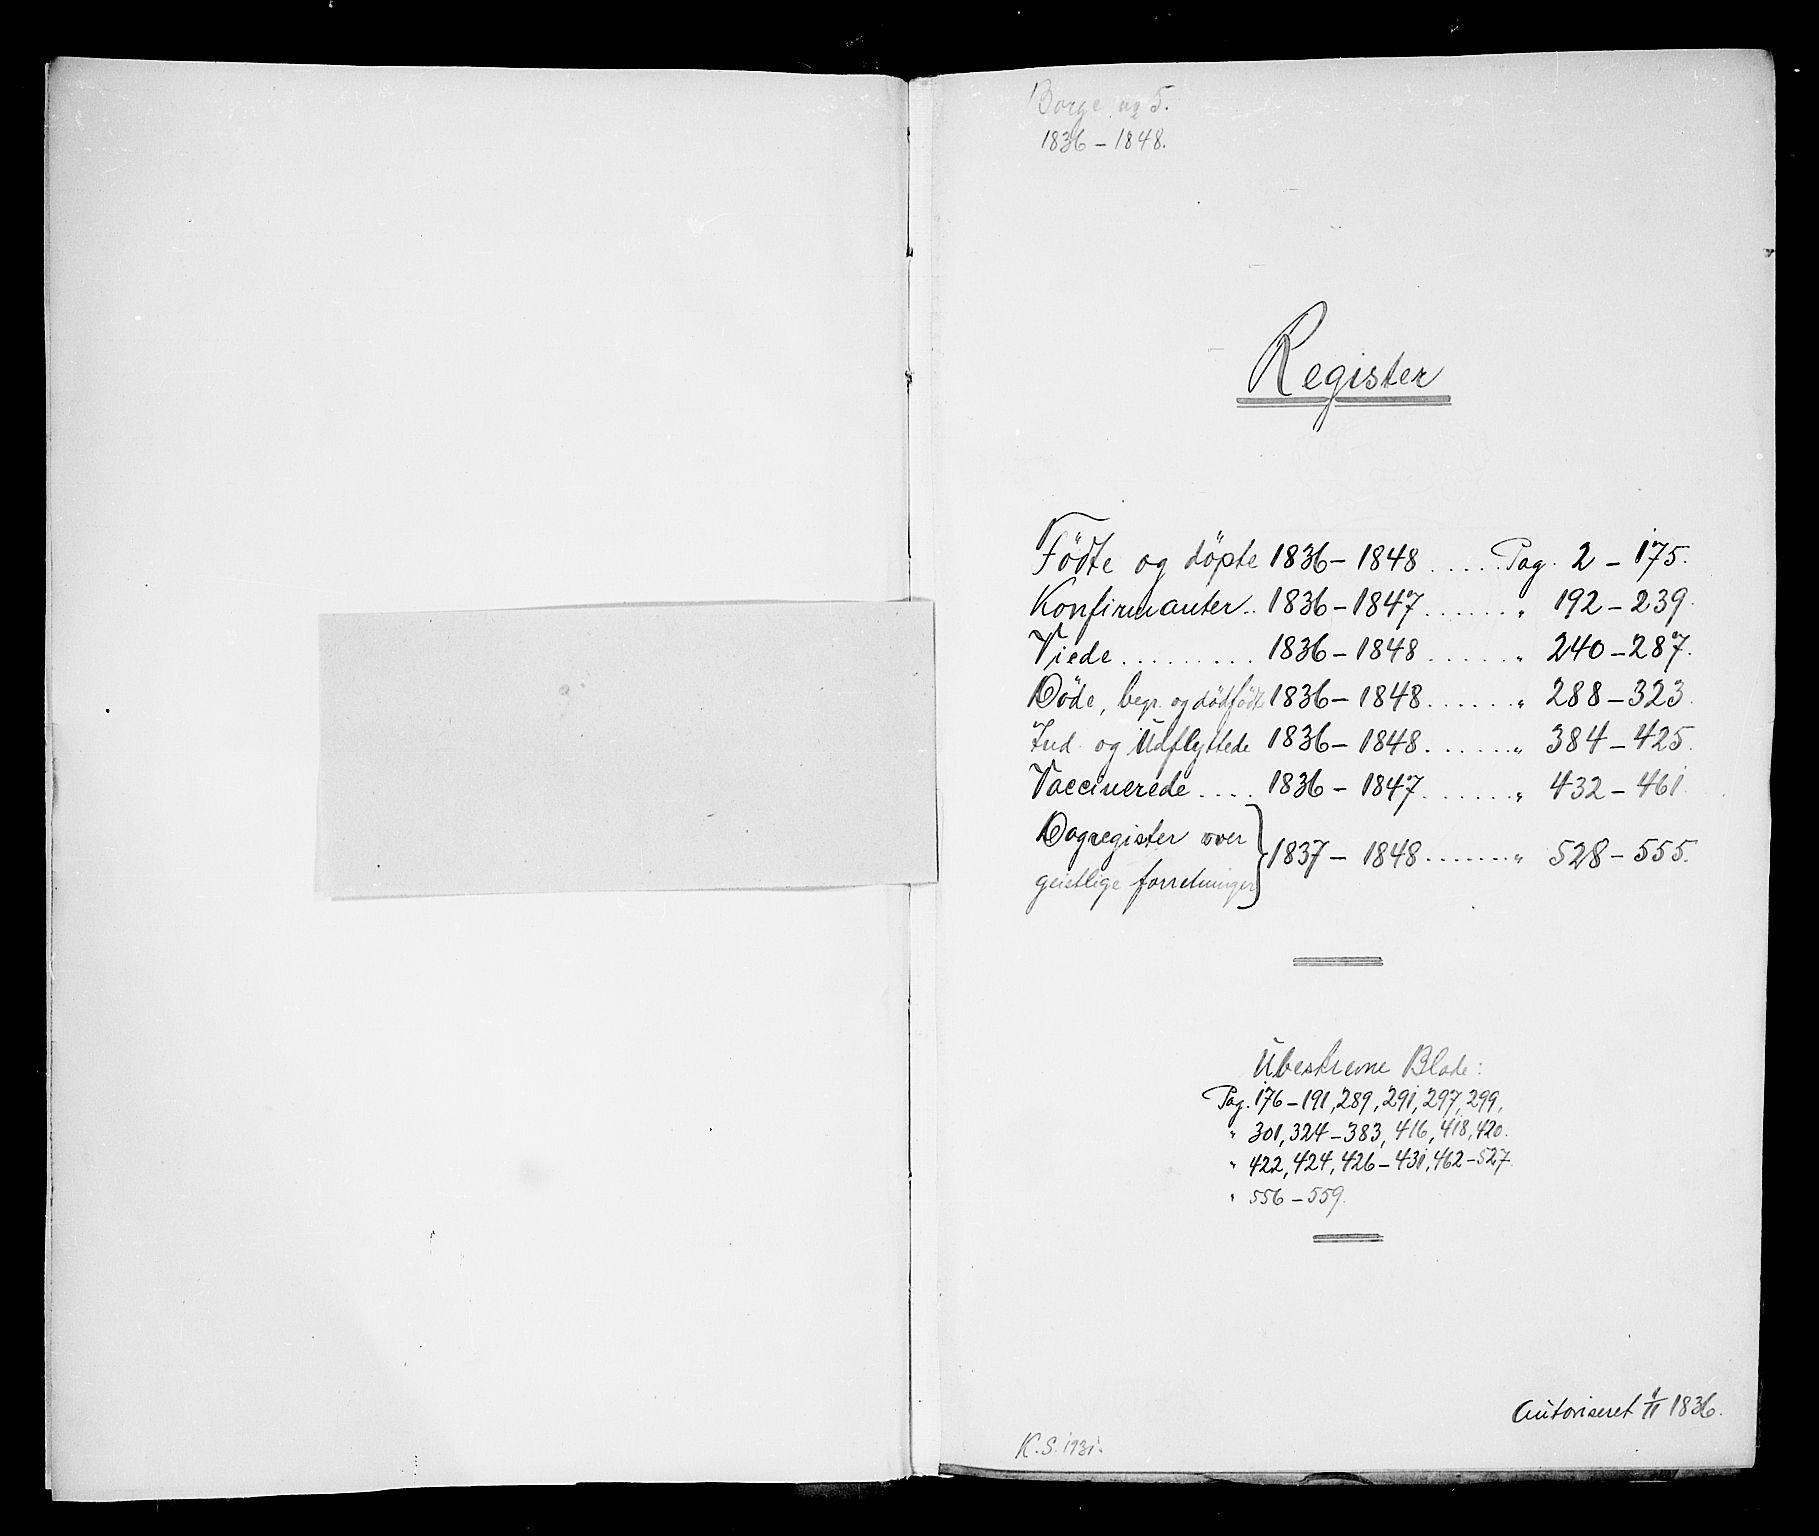 Borge No 5.
1836 – 1848.
Register
Födte og döpte 1836 – 1848 ..... Pag. 2 – 175.
Konfirmanter .. 1836 – 1847 ...... " 192 – 239.
Viede ......... 1836 – 1848 ...... " 240 – 287.
Döde, begr. og dödfödte 1836 – 1848 ...... " 288 – 323.
Ind og Udflyttede 1836 – 1848 ...... " 384 – 425.
Vaccinerede .... 1836 – 1847 ...... " 432 – 461.
Dagregister over
geistlige forretninger } 1837 – 1848 ....... " 528 – 555.
Ubeskrevne Blade:
Pag. 176 – 191, 289, 291, 297, 299,
" 301, 324 – 383, 416, 418, 420.
" 422, 424, 426 – 431, 462 – 527
" 556 – 559.
Autoriseret 1836.
K. S. 1931.